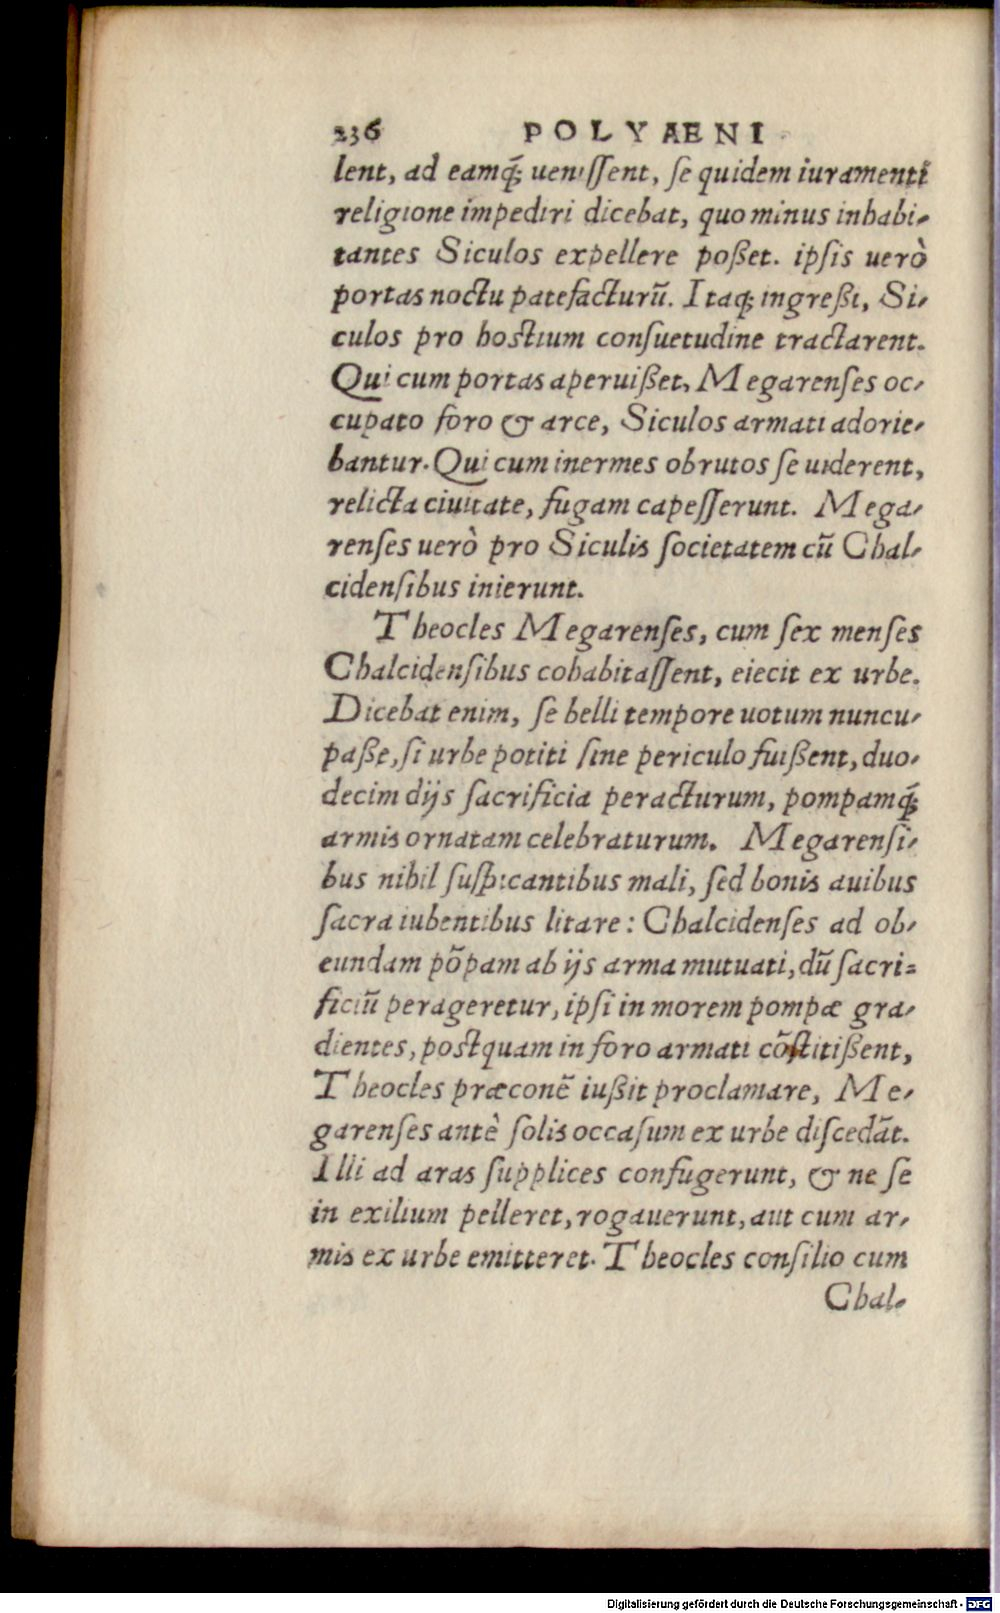 236 POLYÆNI
lent, ad eamq́; ueniſſent, ſe quidem iuramenti
religione impediri dicebat, quo minus inhabi-
tantes Siculos expellere poßet. ipſis uerò
portas noctu patefacturũ. Itaq; ingreßi, Si-
culos pro hostium conſuetudine tractarent.
Qui cum portas aperuißet, Megarenſes oc-
cupato foro & arce, Siculos armati adorie-
bantur. Qui cum inermes obrutos ſe uiderent,
relicta ciuitate, fugam capeſſerunt. Mega-
renſes uerò pro Siculis ſocietatem cũ Chal-
cidenſibus inierunt.
Theocles Megarenſes, cum ſex menſes
Chalcidenſibus cohabitaſſent, eiecit ex urbe.
Dicebat enim, ſe belli tempore uotum nuncu-
paße, ſi urbe potiti ſine periculo fuißent, duo-
decim dijs ſacrificia peracturum, pompamq́;
armis ornatam celebraturum. Megarenſi-
bus nihil ſuſpicantibus mali, ſed bonis auibus
ſacra iubentibus litare: Chalcidenſes ad ob-
eundam põpam ab ijs arma mutuati, dũ ſacri-
ficiũ perageretur, ipſi in morem pompæ gra-
dientes, postquam in foro armati cõstitißent,
Theocles præconẽ iußit proclamare, Me-
garenſes antè ſolis occaſum ex urbe diſcedãt.
Illi ad aras ſupplices confugerunt, & ne ſe
in exilium pelleret, rogauerunt, aut cum ar-
mis ex urbe emitteret. Theocles conſilio cum
Chal-
Digitalisierung gefördert durch die Deutsche Forschungsgemeinschaft - DFG